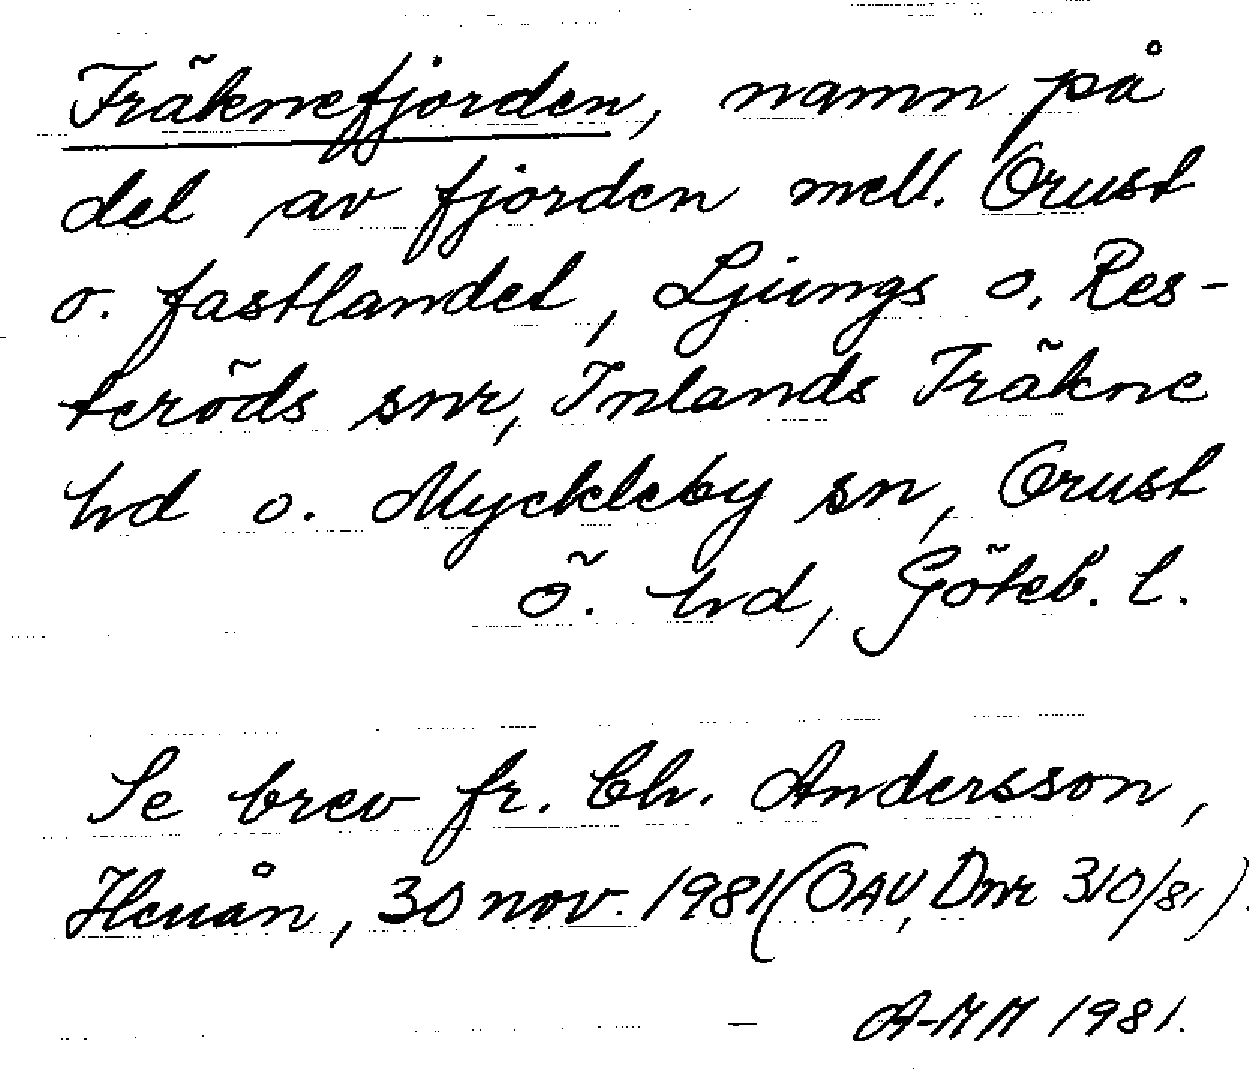 Fräknefjorden, namn på
del av fjorden mell. Orust
o. fastlandet, Ljungs o. Res-
teröds snr, Inlands Fräkne
hd o. Myckleby sn, Orust
ö. hd, Göteb. l.
Se brev fr. Ch. Andersson,
Henån, 30 nov. 1981 (OAU, Dnr 310/81).
A-MM 1981.